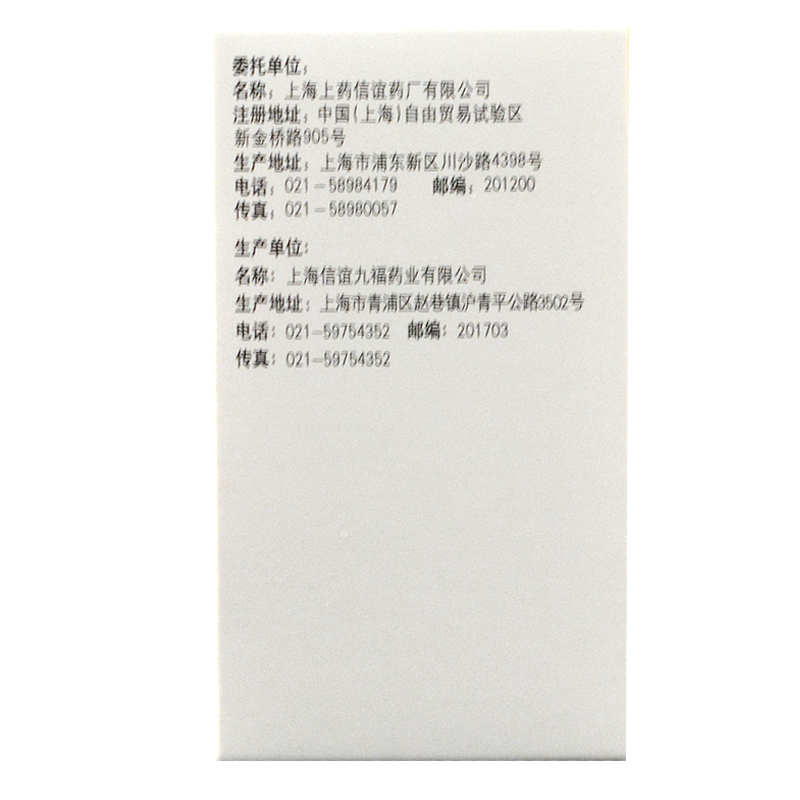 委托单位：
名称：上海上药信谊药厂有限公司
注册地址：中国(上海)自由贸易试验区
新金桥路905号
生产地址：上海市浦东新区川沙路4398号
电话：021-58984179 邮编：201200
传真：021-58980057
生产单位：
名称：上海信谊九福药业有限公司
生产地址：上海市青浦区赵巷镇沪青平公路3502号
电话：021-59754352 邮编：201703
传真：021-59754352